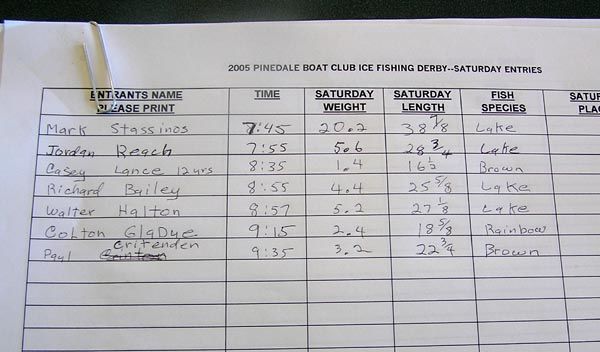 2005 PINEDALE BOAT CLUB ICE FISHING DERBY--SATURDAY ENTRIES
ENTRANTS NAME PLEASE PRINT TIME SATURDAY WEIGHT SATURDAY LENGTH FISH SPECIES SATUR PLAC
Mark Stassinos 7:45 20.2 38 7/8 Lake
Jordan Reach 7:55 5.6 28 3/4 Lake
Casey Lance 12yrs 8:35 1.4 16 1/2 Brown
Richard Bailey 8:55 4.4 25 5/8 Lake
Walter Halton 8:57 5.2 27 1/8 Lake
Colton GlaDue 9:15 2.4 18 5/8 Rainbow
Paul Critenden 9:35 3.2 22 3/4 Brown